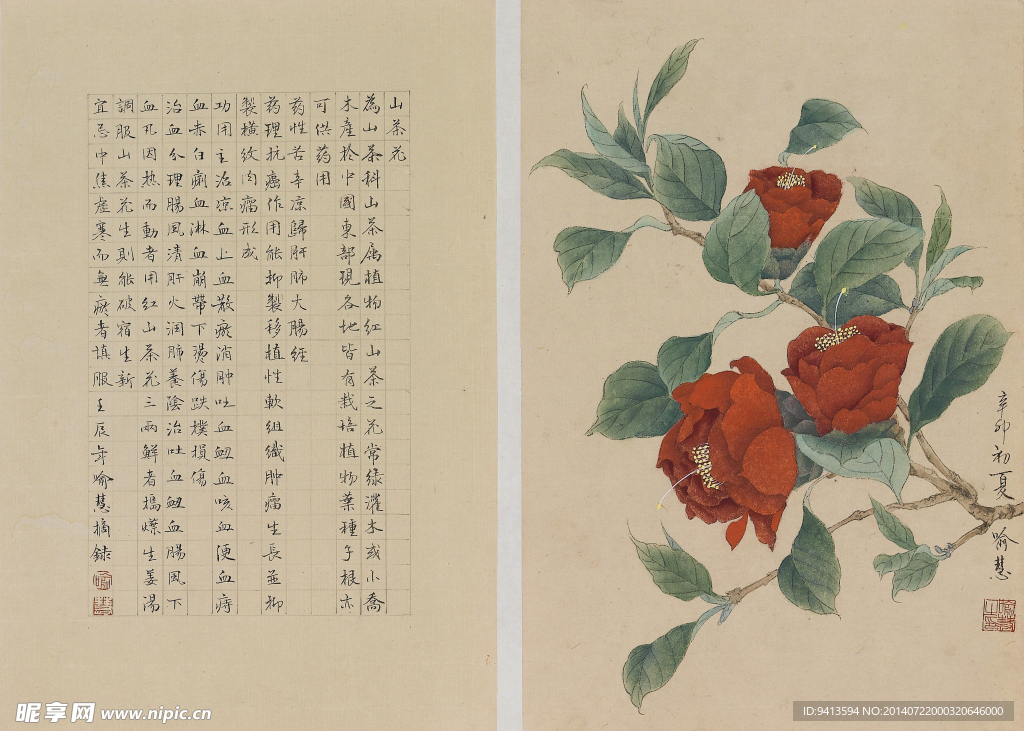 山茶花
為山茶科山茶属植物红山茶之花常绿灌木或小喬
木產於中國東部現各地皆有栽培植物葉種子根亦
可供药用
药性苦辛凉歸肝肺大腸經
药理抗癌作用能抑製移植性軟組織肿瘤生長並抑
製横纹肉瘤形成
功用主治凉血止血散瘀消肿吐血衄血咳血便血痔
血赤白痢血淋血崩帶下燙傷跌撲損傷
治血分理腸風清肝火润肺養陰治吐血衄血腸風下
血孔因热而動者用红山茶花三兩鮮者搗爛生姜湯
調服山茶花生則能破宿生新
宜忌中焦虚寒而無瘀者慎服壬辰年喻慧摘録
辛卯初夏喻慧
昵享网 www.nipic.cn
ID:9413594 NO:20140722000320646000